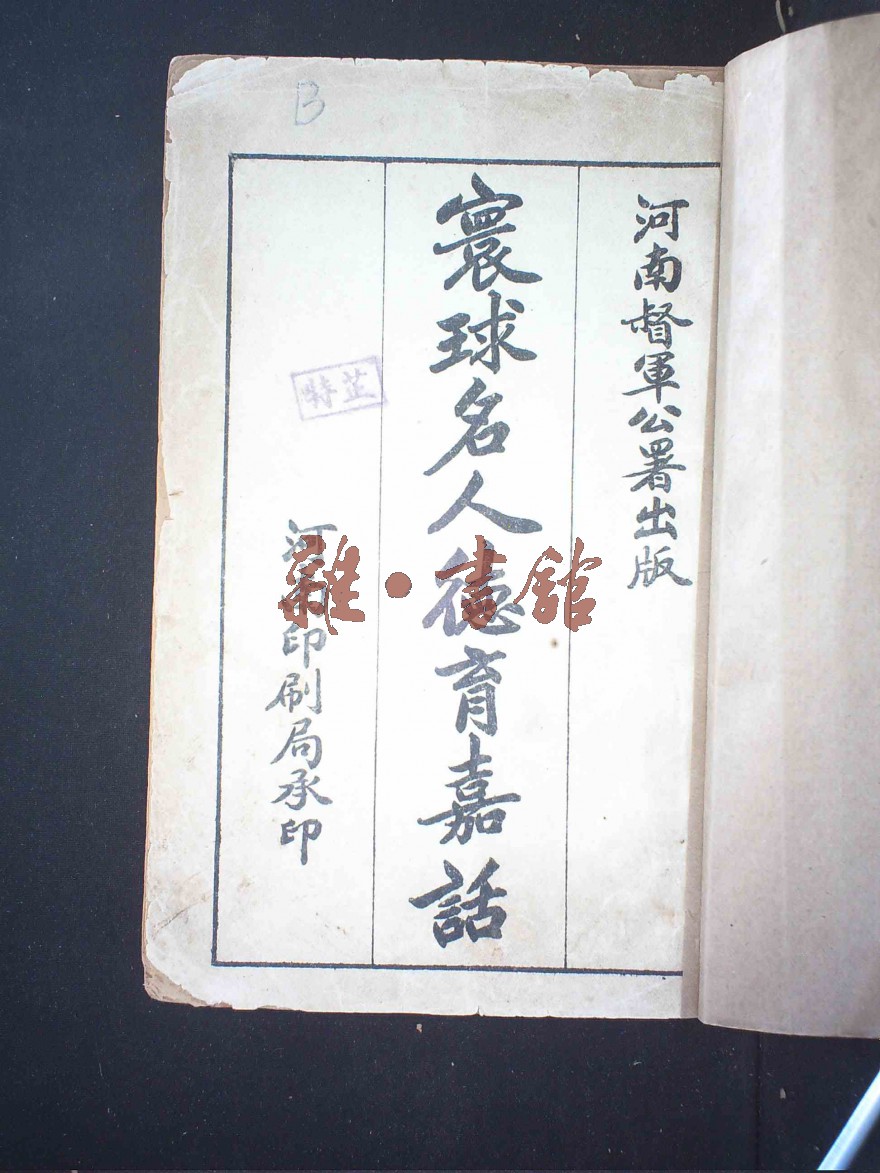 河南督軍公署出版
寰球名人德育嘉話
河南印刷局承印
特芷
雜·書館
B